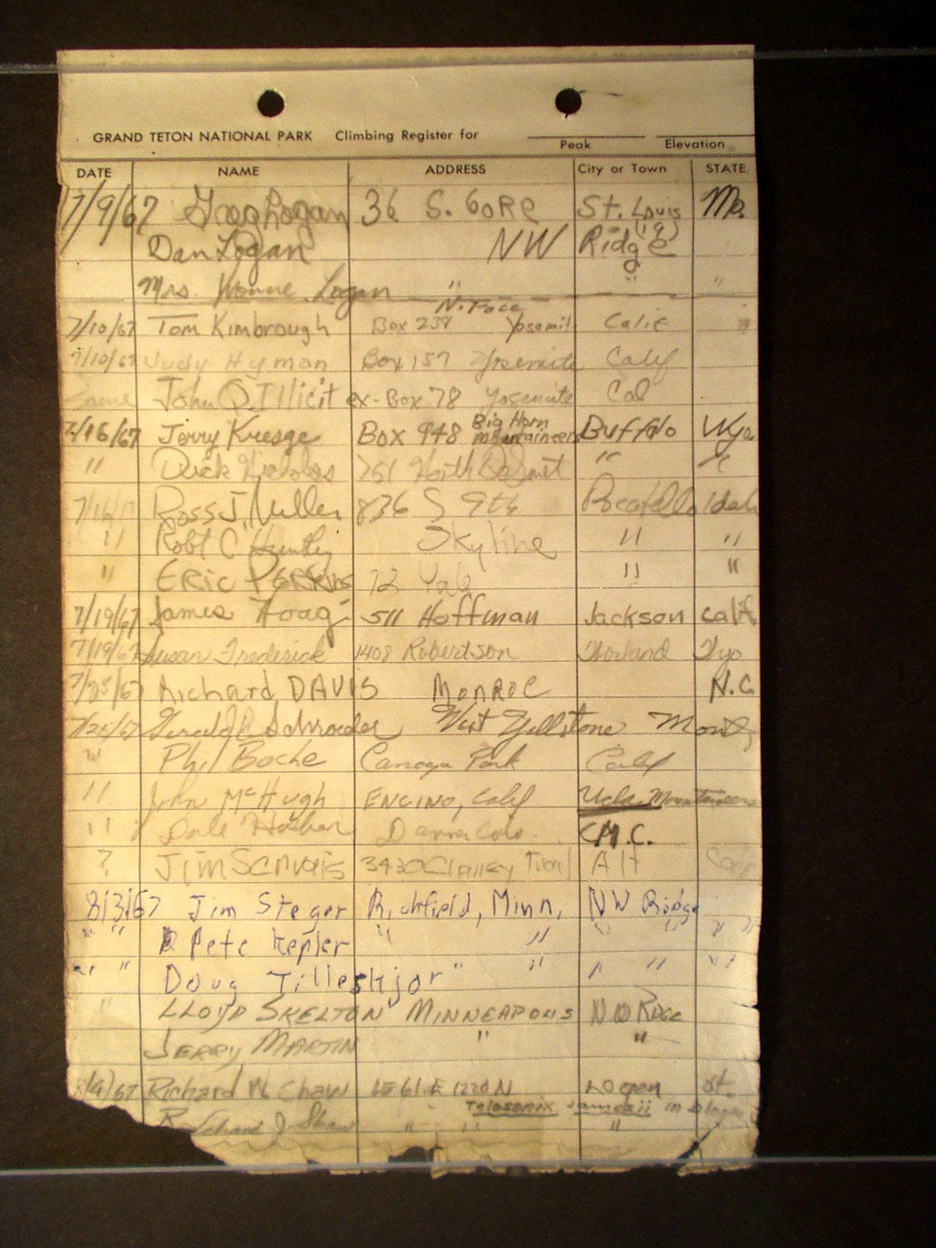 GRAND TETON NATIONAL PARK Climbing Register for
Peak Elevation
DATE NAME ADDRESS City or Town STATE
7/9/67 Greg Logan 36 S. GORE St. Louis Mo.
(19)
Dan Logan NW Ridge
Mrs. Logan " " "
N. Face
7/10/67 Tom Kimbrough Box 237 Yosemite Calif "
7/10/67 Judy Hyman Box 157 Yosemite Calif
Same John Q. Illicit ex-Box 78 Yosemite Cal
7/16/67 Jerry Kresge Box 948 Big Horn Mountaineers Buffalo Wyo
" Dick 751 North " "
7/16/67 Ross J. Miller 836 S 9th Pocatello Idah
" Robt C Skyline " "
" ERIC PERKINS 72 Yale " "
7/19/67 James Hoag 511 Hoffman Jackson Calif.
7/19/67 Susan Frederick 1408 Robertson Worland Wyo
7/25/67 Richard DAVIS MONROE N.C.
7/25/67 Gerald R. Schroeder West Yellstone Mont
" Phil Boche Canoga Park Calif
" John McHugh ENCINO, Calif Ucla Mountaineers
" Dale Denver Colo. C.M.C.
? Jim Alt
8/3/67 Jim Steger Richfield, Minn, NW Ridge
" " Pete Kepler " " " " " "
" " Doug Tilleskjor " " " " " "
" LLOYD SKELTON MINNEAPOLIS NW RIDGE
JERRY MARTIN " "
8/9/67 Richard N. Shaw 61 E 1220 N Logan Ut.
Telesonix jamesii in
Richard J. Shaw " " "